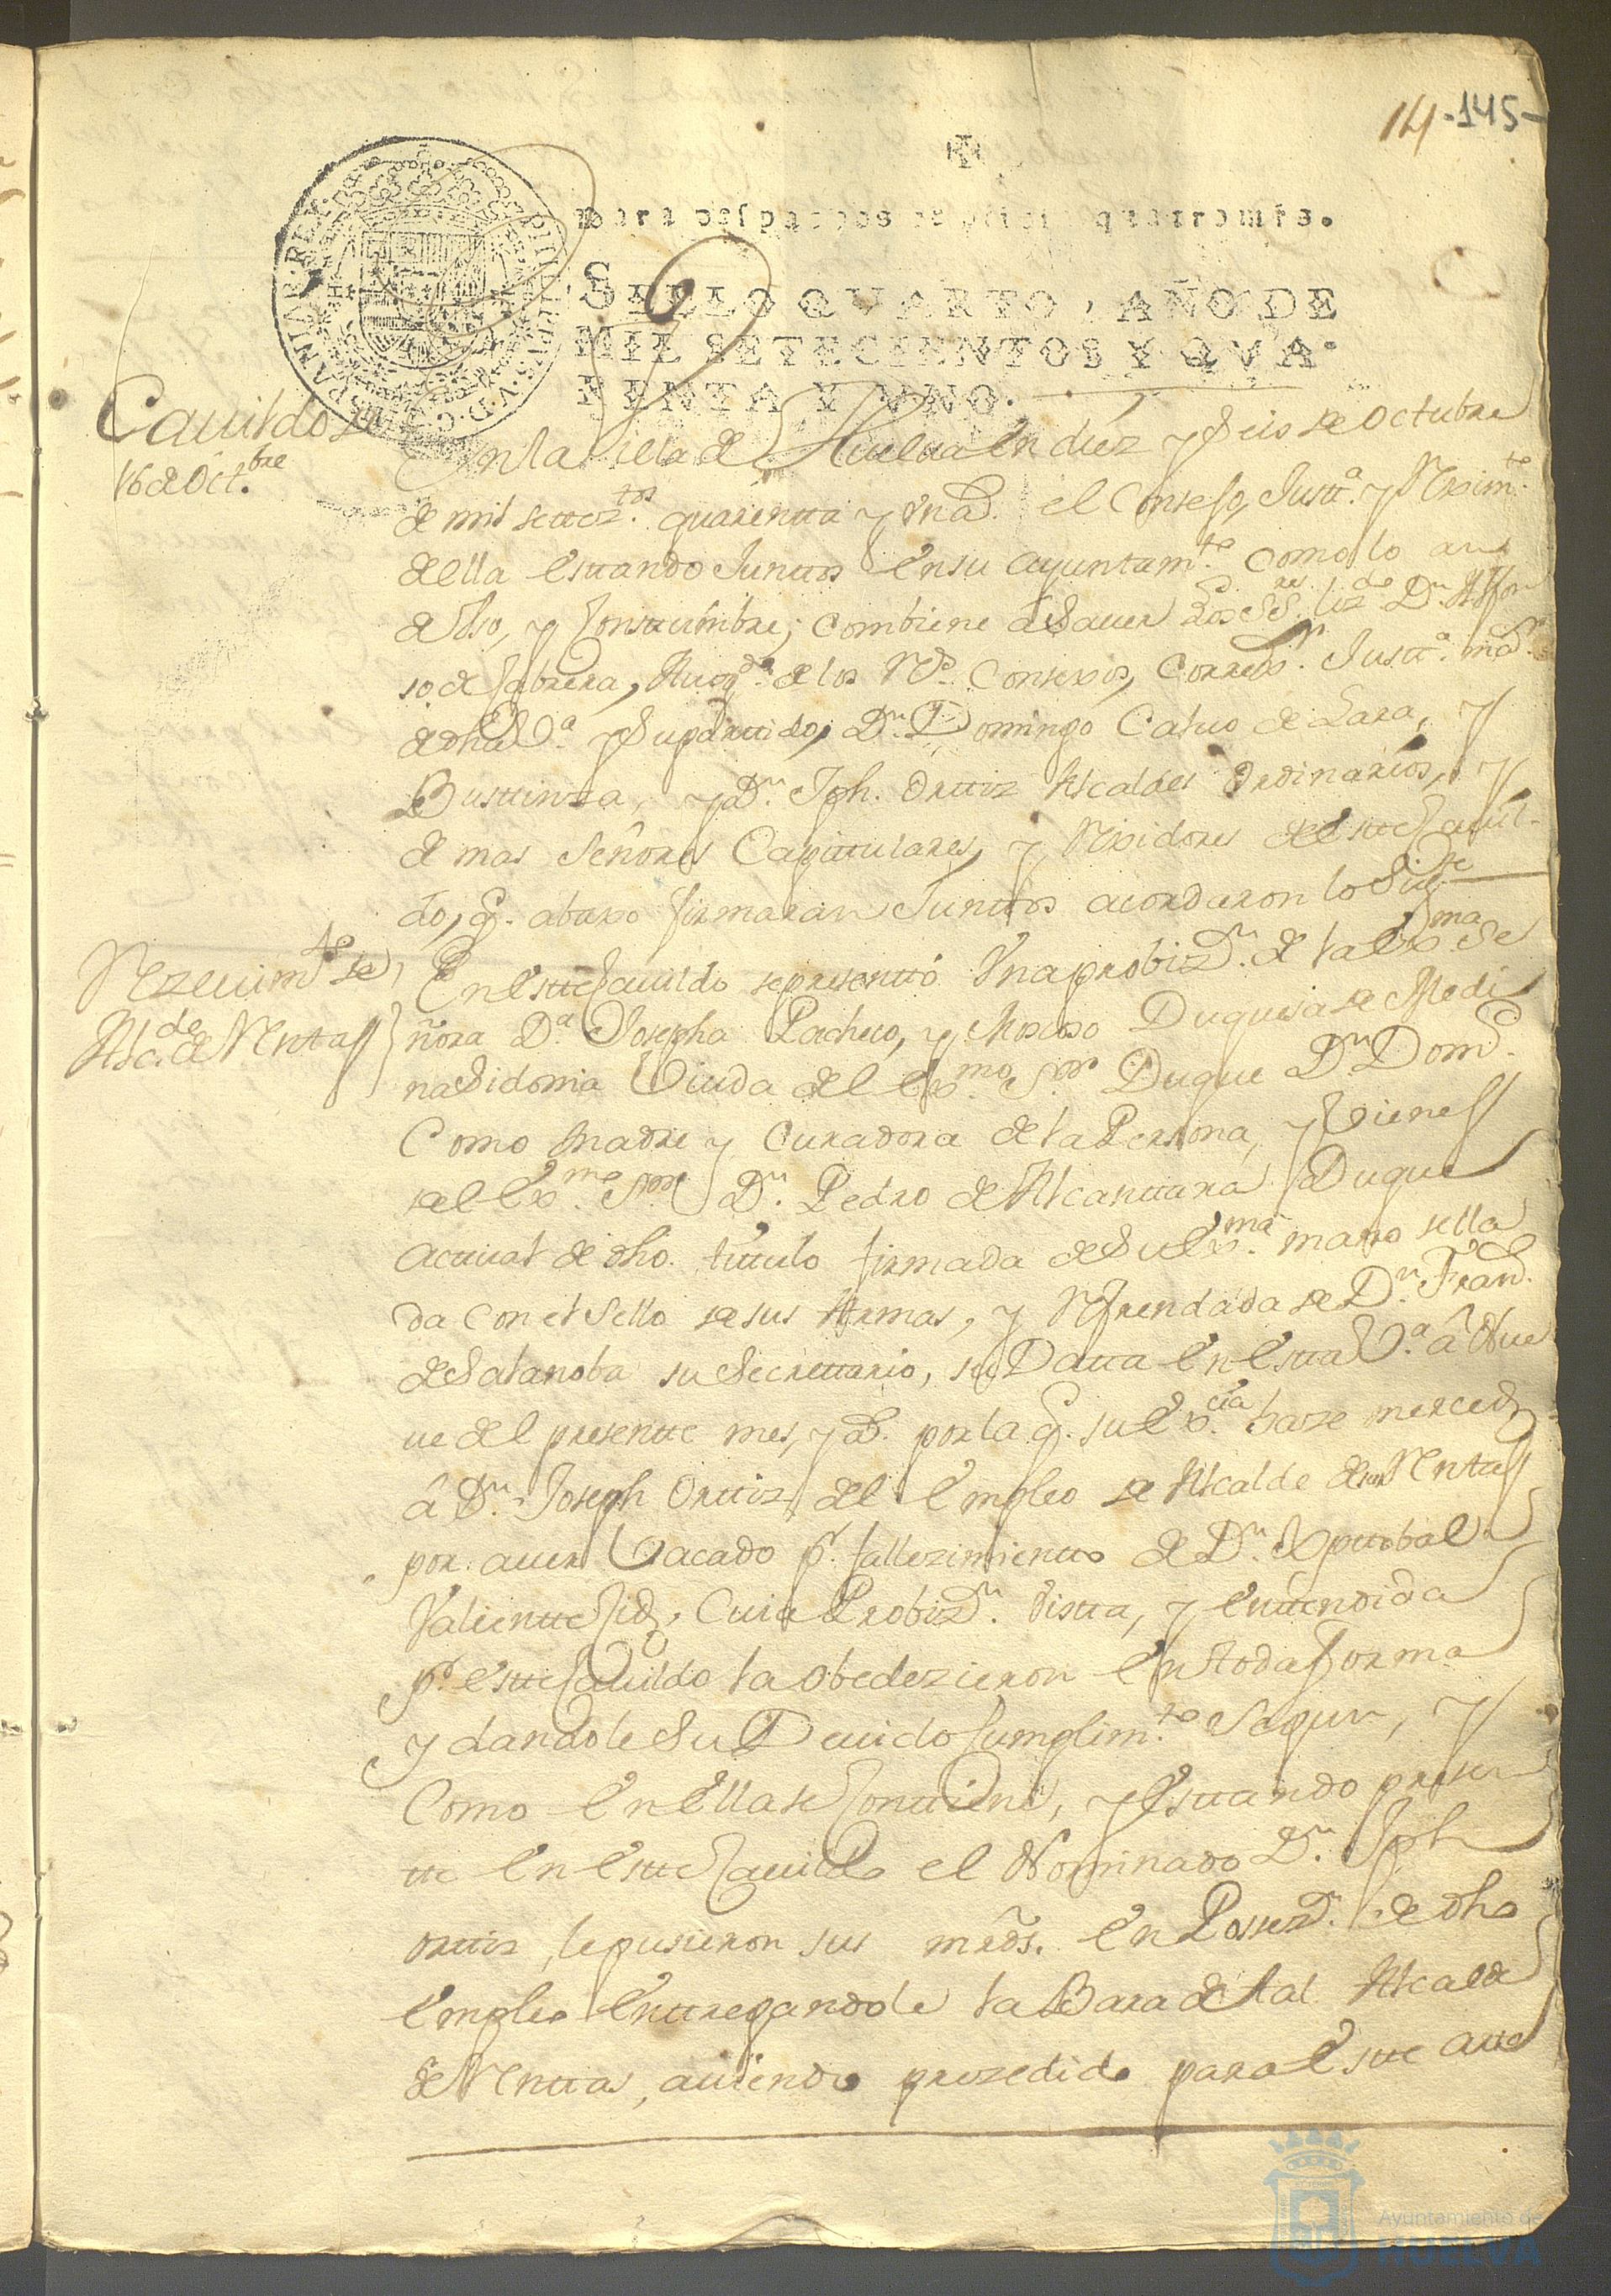 14 -145-
para despachos de oficio quatro mrs.
SELLO QVARTO, AÑO DE
MIL SETECIENTOS Y QVA-
RENTA Y VNO.
HISPANIAR. REX.
Cauildo
16 de Oct.bre
En la Villa de Huelua en diez y Seis de Octubre
de mil settez.tos quarenta y vn a.s el Consejo, Justt.a y Reximt.to
de ella esttando Junttos en su ayuntam.to como lo an
de Vso, y Consttumbre; combiene a Sauer Los SS.res Liz.do D.n Alfon
so de Cabrera, Auog.do de los R.s Consexos, Correx.r Justt.a m.r
de dha V.a y Su parttido, D.n Domingo Caluo de Lara, y
Busttinza, y D.n Jph. Orttiz Alcaldes Ordinarios, y
de mas Señores Capittulares, y Rexidores de estte Cauil-
do, q. abaxo firmaran Junttos acordaron lo Sig.te
Rezeuim.to de
Alc.de de Renttas
En estte Cauildo se presenttó Vna probiz.n de la Ex.ma Se
ñora D.a Josepha Pacheco, y Moscoso Duquesa de Medi
na Sidonia Viuda de el Ex.mo S.or Duque D.n Dom.o
Como Madre y Curadora de la Persona, y Vienes
de el Ex.mo S.or D.n Pedro de Alcanttara Duque
acttual de dho. títtulo firmada de Su Ex.ma mano sella
da con el Sello de sus Armas, y Refrendada de D.n Fran.co
de Salanoba su Secrettario, su Datta en estta V.a â Nue
ue de el presentte mes, y a.o por la q. su Ex.cia haze merced
â D.n Joseph Orttiz de el empleo de Alcalde de sus Renttas
por auer Vacado p.r fallezimientto de D.n Xpttobal
Valientte Cid, Cuia Probiz.n Vistta, y enttendida
p.r estte Cauildo la obedezieron en toda forma
y dandole Su Deuido Cumplim.to Segun, y
Como en ella se Conttiene, y esttando presen
tte en estte Cauildo el Nominado D.n Jph
Orttiz, le pusieron sus mrds. en Possez.n de dho
empleo enttregandole la Bara de tal Alcalde
de Renttas, auiendo prozedido para estte autto
Ayuntamiento de
HUELVA